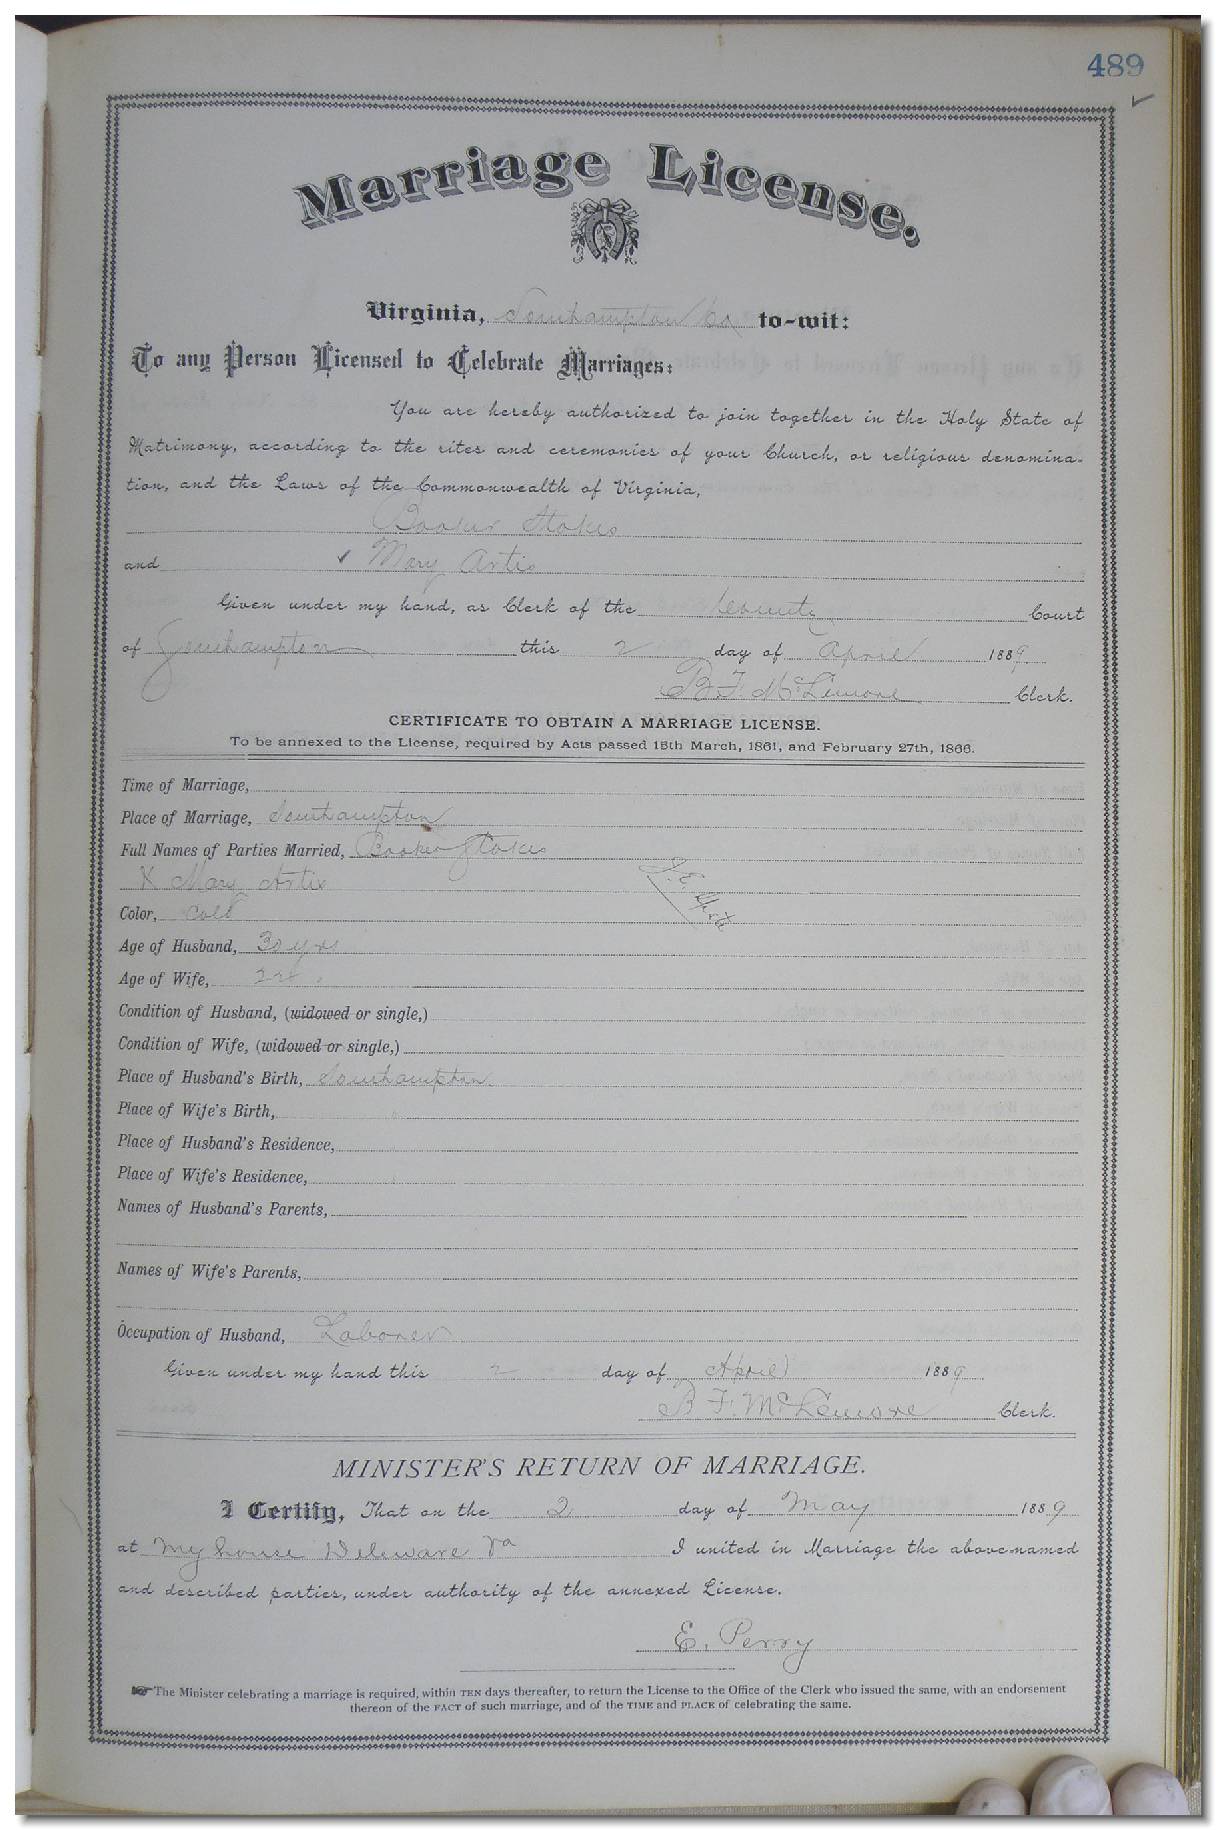 489
Marriage License.
Virginia, Southampton Co to-wit:
To any Person Licensed to Celebrate Marriages:
You are hereby authorized to join together in the Holy State of
Matrimony, according to the rites and ceremonies of your Church, or religious denomina-
tion, and the Laws of the Commonwealth of Virginia,
Booker Stokes
and ✓ Mary Artis
Given under my hand, as Clerk of the County Court
of Southampton this 2 day of April 1889
B. F. McLemore Clerk.
CERTIFICATE TO OBTAIN A MARRIAGE LICENSE.
To be annexed to the License, required by Acts passed 15th March, 1861, and February 27th, 1866.
Time of Marriage,
Place of Marriage, Southampton
Full Names of Parties Married, Booker Stokes
X Mary Artis
Color, Cold
Age of Husband, 30 yrs
Age of Wife,
Condition of Husband, (widowed or single,)
Condition of Wife, (widowed or single,)
Place of Husband's Birth, Southampton
Place of Wife's Birth,
Place of Husband's Residence,
Place of Wife's Residence,
Names of Husband's Parents,
Names of Wife's Parents,
Occupation of Husband, Laborer
Given under my hand this 2 day of April 1889
B. F. McLemore Clerk.
MINISTER'S RETURN OF MARRIAGE.
I Certify, That on the 2 day of May 1889
at my house Deleware Va I united in Marriage the above-named
and described parties, under authority of the annexed License.
E. Perry
The Minister celebrating a marriage is required, within TEN days thereafter, to return the License to the Office of the Clerk who issued the same, with an endorsement
thereon of the FACT of such marriage, and of the TIME and PLACE of celebrating the same.